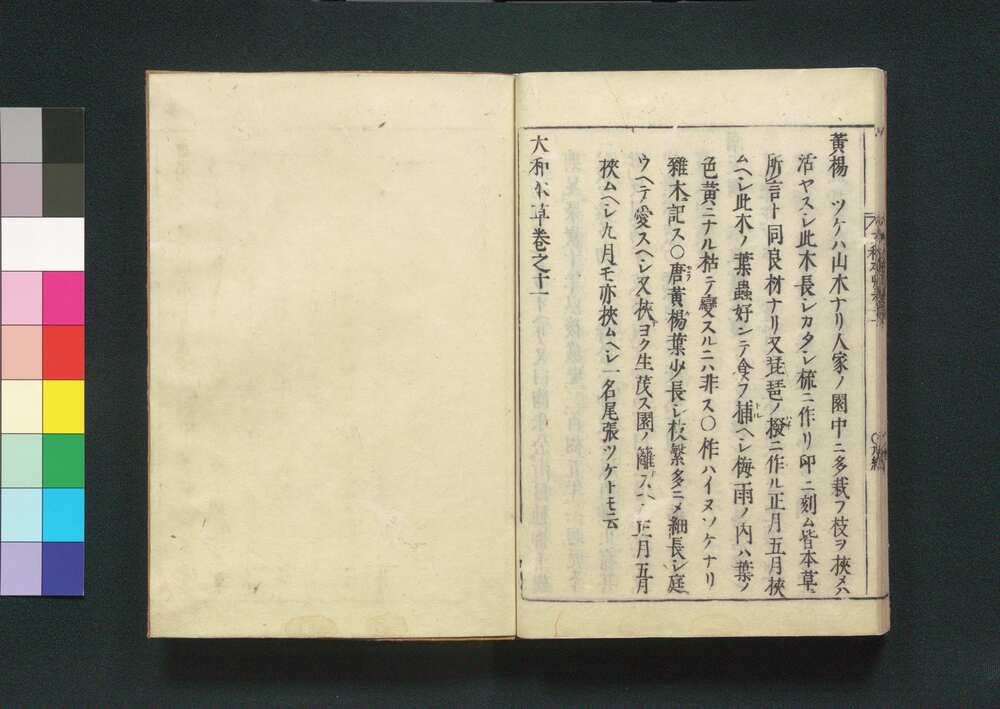 黃楊 ツケハ山木ナリ人家ノ園中ニ多栽フ枝ヲ挾メハ
活ヤスシ此木長シカタシ梳ニ作リ印ニ刻ム皆本草ニ
所言ト同良材ナリ又琵琶ノ撥ニ作ル正月五月挾
ムヘシ此木ノ葉蟲好ンテ食フ捕ヘシ梅雨ノ内ハ葉ノ
色黃ニナル枯テ變スルニハ非ス〇柞ハイヌツケナリ
雜木ニ記ス〇唐黃楊葉少長シ枝繁多ニメ細長シ庭ニ
ウヘテ愛スヘシ又挾ヨク生茂ス園ノ籬スヘシ正月五月
挾ムヘシ九月モ亦挾ムヘシ一名尾張ツケトモ云
大和本草卷之十一